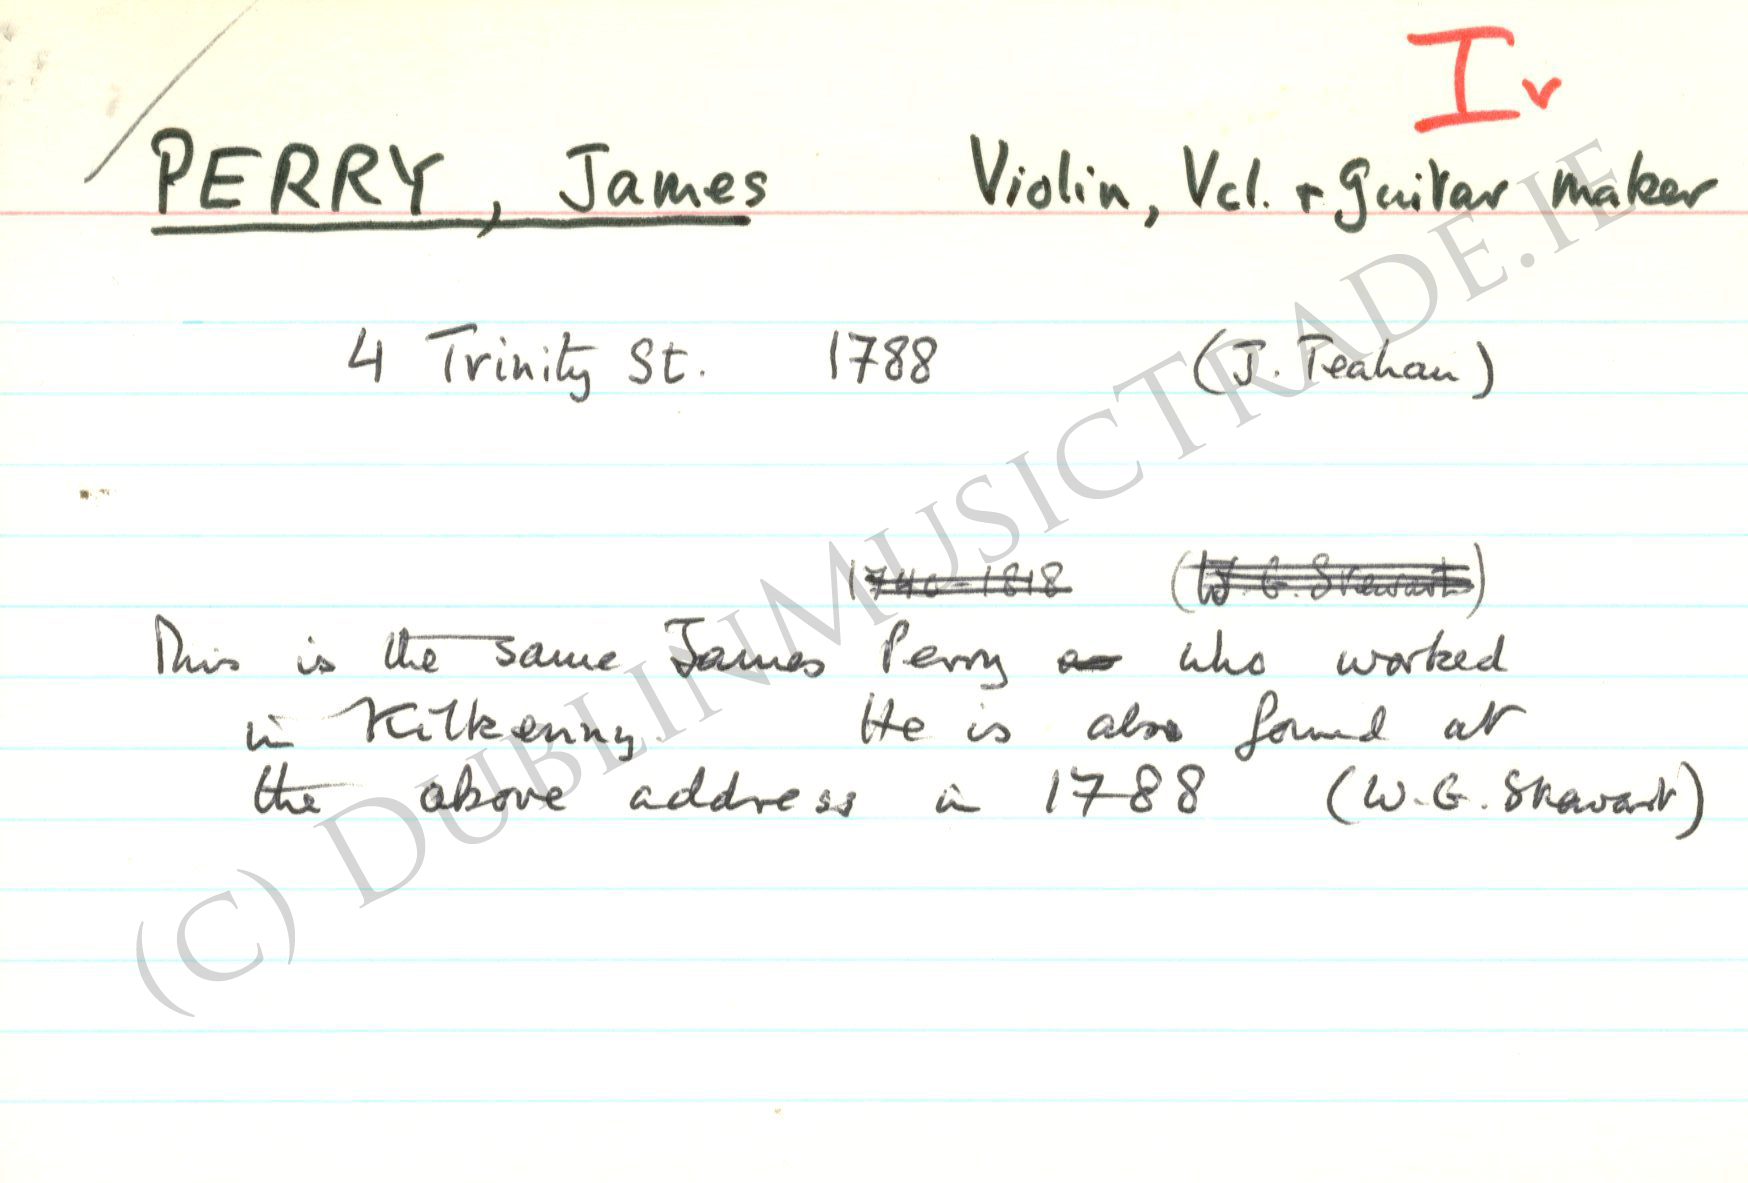 Iv
PERRY, James Violin, Vcl. + guitar maker
4 Trinity St. 1788 (J. Teahan)
1740-1818 (W. G. Stewart)
This is the same James Perry as who worked
in Kilkenny. He is also found at
the above address in 1788 (W.G. Stewart)
(C) DUBLINMUSICTRADE.IE